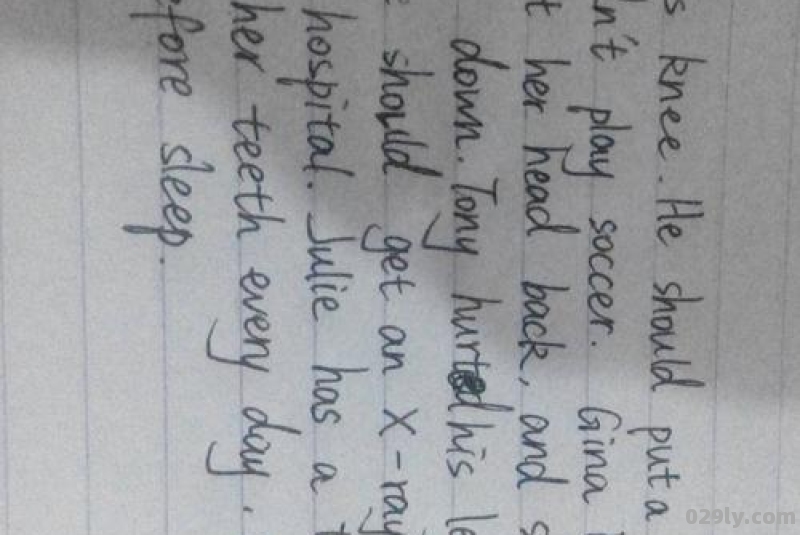 knee. He should put a
play soccer. Gina
her head back, and
down. Tony hurt his
should get an X-ray
hospital. Julie has a
her teeth every day.
sleep.
029ly.com